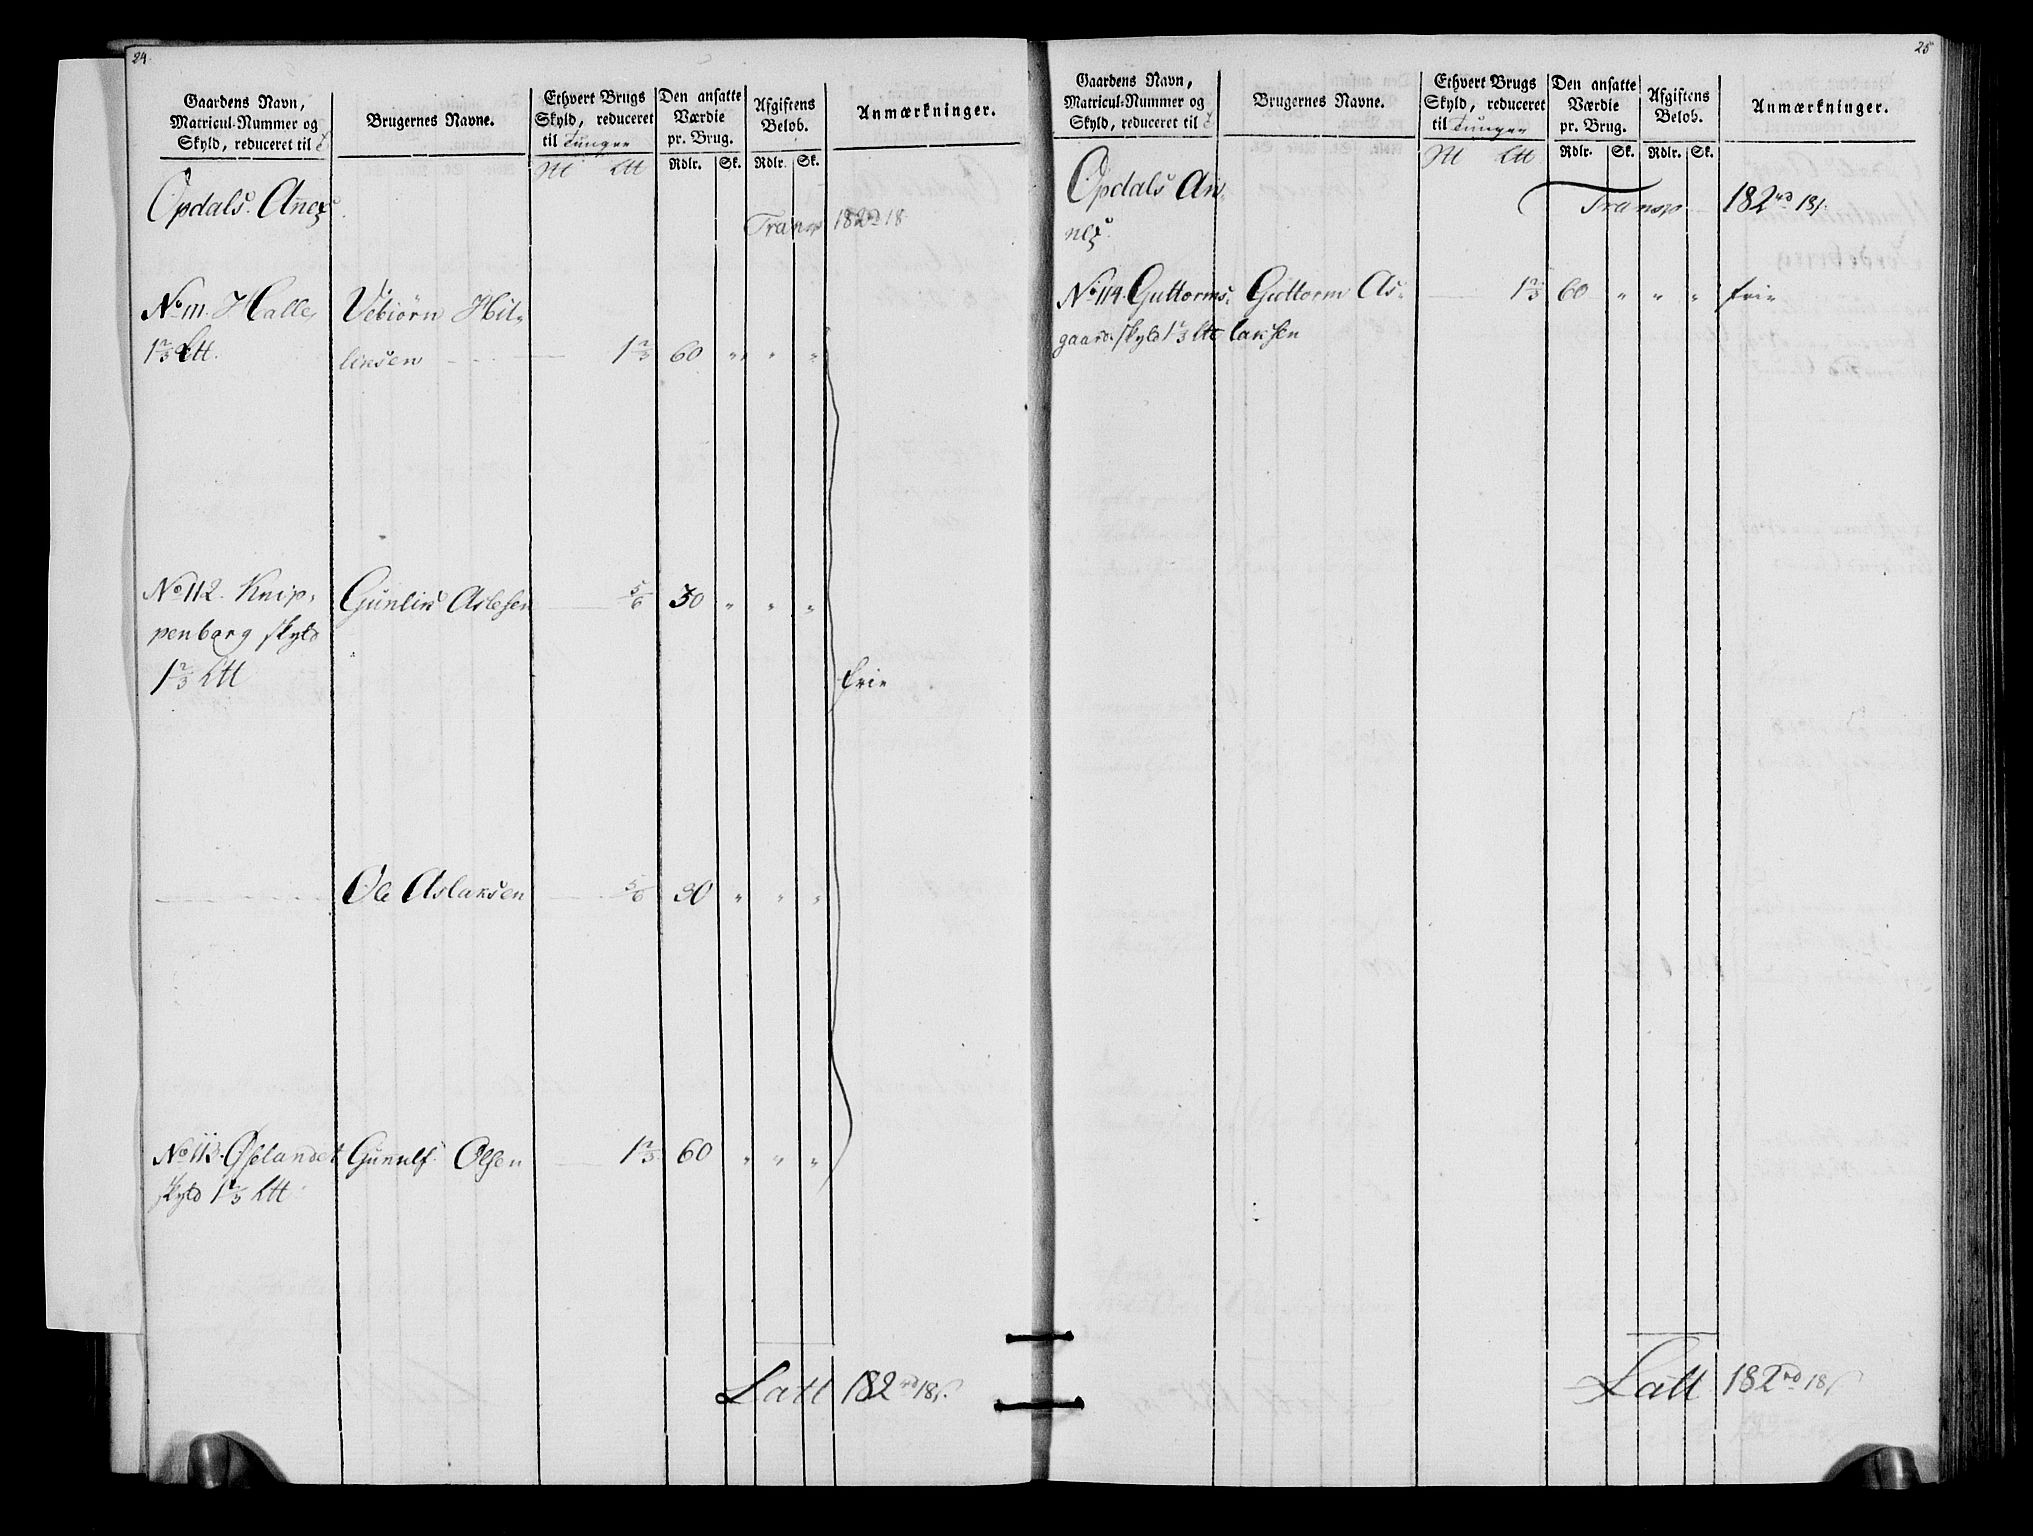 24
Gaardens Navn,
Matricul-Nummer og
Skyld, reduceret til
Brugernes Navne.
Ethvert Brugs
Skyld, reduceret
til Tunger
Den ansatte
Værdie
pr. Brug.
Rdlr. Sk.
Afgiftens
Belob.
Rdlr. Sk.
Anmærkninger.
Opdals. Anex
Transp 182 rd 18
No 111. Halle,
1 2/3 Ltt.
Vebiørn Hel-
liksen 1 2/3 60 " " "
No 112. Knip-
penborg skyld
1 2/3 Ltt
Gunlik Aslesen 5/6 30 " " "
frie
Ole Aslaksen 5/6 30 " " "
No 113. Øslandet
skyld 1 2/3 Ltt
Gunulf Olsen 1 2/3 60 " " "
Latt 182 rd 18 s.
25
Gaardens Navn,
Matricul-Nummer og
Skyld, reduceret til
Brugernes Navne.
Ethvert Brugs
Skyld, reduceret
til Tunger
Den ansatte
Værdie
pr. Brug.
Rdlr. Sk.
Afgiftens
Belob.
Rdlr. Sk.
Anmærkninger.
Opdals An-
nex
Transp 182 rd 18 s.
No 114. Guttorms-
gaard. skyld 1 2/3 Ltt
Guttorm As-
laksen
1 2/3 60 " " " frie
Latt 182 rd 18 s